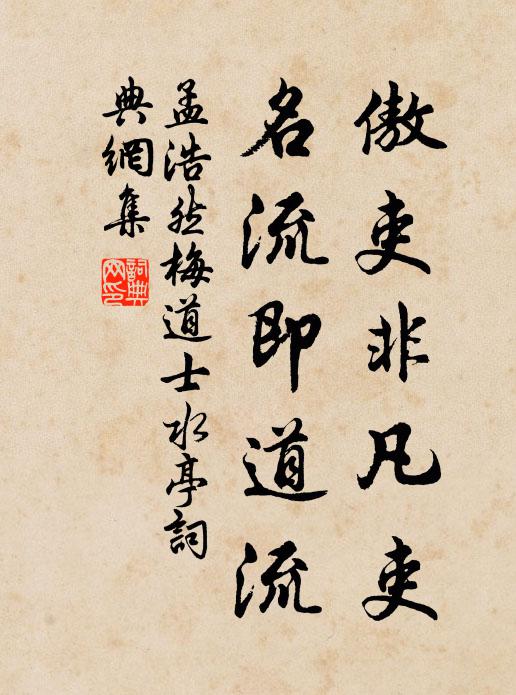 傲吏非凡吏
名流即道流
孟浩然梅道士水亭詞
典網集
詞典
网印